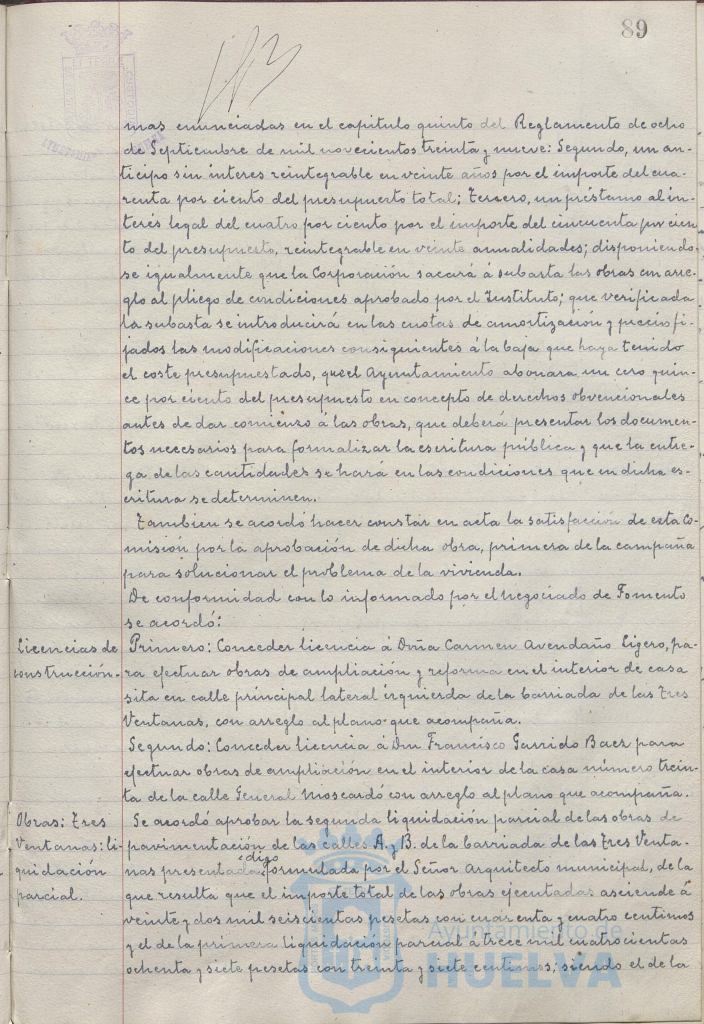 89
mas enunciadas en el capitulo quinto del Reglamento de ocho
de Septiembre de mil novecientos treinta y nueve: Segundo, un an-
ticipo sin interes reintegrable en veinte años por el importe del cua-
renta por ciento del presupuesto total; Tercero, un préstamo al in-
terés legal del cuatro por ciento por el importe del cincuenta por cien
to del presupuesto, reintegrable en veinte anualidades; disponiendo-
se igualmente que la Corporación sacará á subasta las obras con arre-
glo al pliego de condiciones aprobado por el Instituto; que verificada
la subasta se introducirá en las cuotas de amortización y precio fi-
jados las modificaciones consiguientes á la baja que haya tenido
el coste presupuestado, que el Ayuntamiento abonara un cero quin-
ce por ciento del presupuesto en concepto de derechos obvencionales
antes de dar comienzo á las obras, que deberá presentar los documen-
tos necesarios para formalizar la escritura pública y que la entre-
ga de las cantidades se hará en las condiciones que en dicha es-
critura se determinen.
Tambien se acordó hacer constar en acta la satisfacción de esta Co-
misión por la aprobación de dicha obra, primera de la campaña
para solucionar el problema de la vivienda.
De conformidad con lo informado por el negociado de Fomento
se acordó:
Licencias de
construcción.-
Primero: Conceder licencia á Doña Carmen Avendaño Ligero, pa-
ra efectuar obras de ampliación y reforma en el interior de casa
sita en calle principal lateral izquierda de la barriada de las Tres
Ventanas, con arreglo al plano que acompaña.
Segundo: Conceder licencia á Don Francisco Garrido Baez para
efectuar obras de ampliación en el interior de la casa número trein-
ta de la calle General Moscardó con arreglo al plano que acompaña.
Obras: Tres
Ventanas: li-
quidación
parcial.
Se acordó aprobar la segunda liquidación parcial de las obras de
pavimentación de las calles A. y B. de la barriada de las Tres Venta-
digo
nas presentada formulada por el Señor Arquitecto municipal, de la
que resulta que el importe total de las obras ejecutadas asciende á
veinte y dos mil seiscientas pesetas con cuarenta y cuatro centimos
y el de la primera liquidación parcial á trece mil cuatrocientas
ochenta y siete pesetas con treinta y siete centimos; siendo el de la
Ayuntamiento de
HUELVA